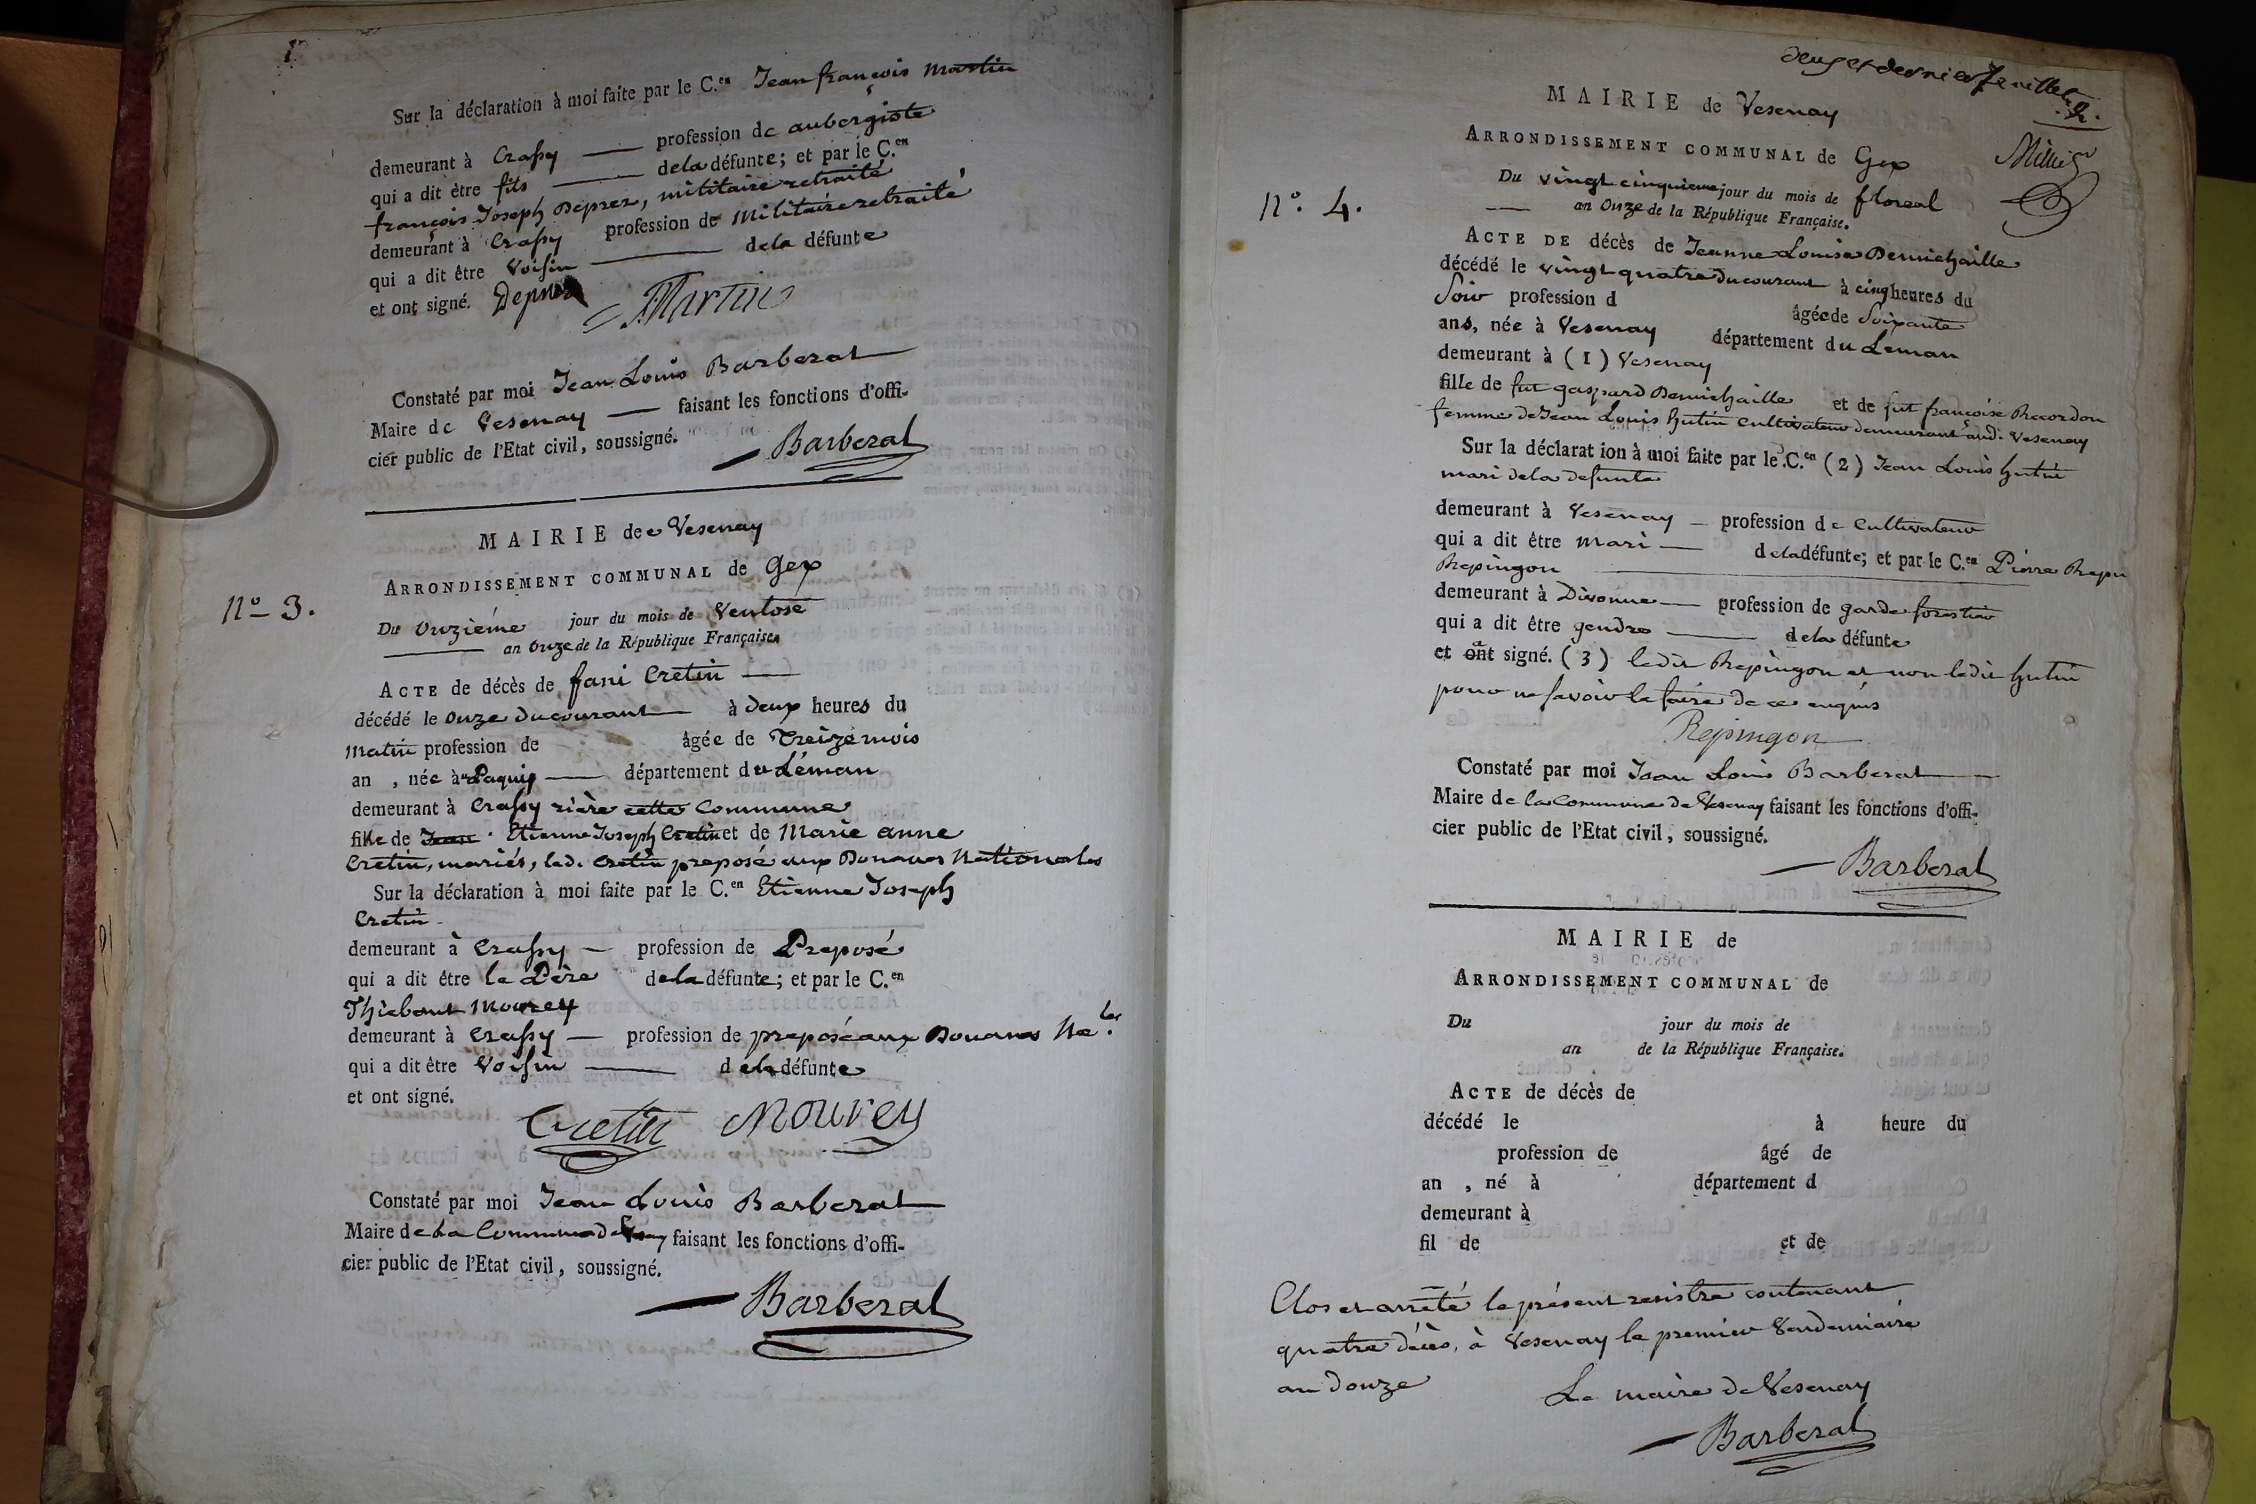 Sur la déclaration à moi faite par le C.en Jean françois Martin
demeurant à Crassy — profession de aubergiste
qui a dit être fils — de la défunte; et par le C.en
françois Joseph Deprez, militaire retraité
demeurant à Crassy profession de Militaire retraité
qui a dit être Voisin — de la défunte
et ont signé. Deprez Martin
Constaté par moi Jean Louis Barberat
Maire de Vesenay — faisant les fonctions d'offi-
cier public de l'Etat civil, soussigné.
Barberat
MAIRIE de Vesenay
ARRONDISSEMENT COMMUNAL de Gex
N.o 3.
Du Onziéme jour du mois de Ventose
an Onze de la République Française.
ACTE de décès de fani Cretin —
décédé le Onze du courant — à deux heures du
Matin profession de âgée de Treize mois
an , née à Paquis — département du Léman
demeurant à Crassy rière cette Commune
fille de Jean Etienne Joseph Cretin et de Marie anne
Cretin, mariés, led. Cretin preposé aux Douanes Nationales
Sur la déclaration à moi faite par le C.en Etienne Joseph
Cretin
demeurant à Crassy — profession de Preposé
qui a dit être le Père de la défunte; et par le C.en
Thiebaut Mourey
demeurant à Crassy — profession de preposé aux Douanes Na.les
qui a dit être Voisin — de la défunte
et ont signé.
Cretin Mourey
Constaté par moi Jean Louis Barberat
Maire de La Commune de Vesenay faisant les fonctions d'offi-
cier public de l'Etat civil, soussigné.
Barberat
deux et dernier feuillet
2.
MAIRIE de Vesenay
ARRONDISSEMENT COMMUNAL de Gex
N.o 4.
Du vingt cinquieme jour du mois de floreal
— an Onze de la République Française.
ACTE DE décès de Jeanne Louise Dermichaille
décédé le vingt quatre du courant à cinq heures du
Soir profession d âgée de Soixante
ans, née à Vesenay département du Leman
demeurant à (1) Vesenay
fille de fut gaspard Dermichaille et de fut françoise Recordon
femme de Jean Louis hutin Cultivateur demeurant aud. Vesenay
Sur la déclaration à moi faite par le C.en (2) Jean Louis hutin
mari de la defunte
demeurant à Vesenay — profession de Cultivateur
qui a dit être mari — de la défunte; et par le C.en Pierre Repin
Repingon
demeurant à Divonne — profession de garde forestier
qui a dit être gendre — de la défunte
et ont a signé. (3) ledit Repingon et non ledit hutin
pour ne savoir le faire de ce enquis
Repingon
Constaté par moi Jean Louis Barberat —
Maire de la Commune de Vesenay faisant les fonctions d'offi-
cier public de l'Etat civil, soussigné.
Barberat
MAIRIE de
ARRONDISSEMENT COMMUNAL de
Du jour du mois de
an de la République Française.
ACTE de décès de
décédé le à heure du
profession de âgé de
an , né à département d
demeurant à
fil de et de
Clos et arrêté le présent resistre contenant
quatre décès, à Vesenay le premier Vendemiaire
an douze
Le maire de Vesenay
Barberat